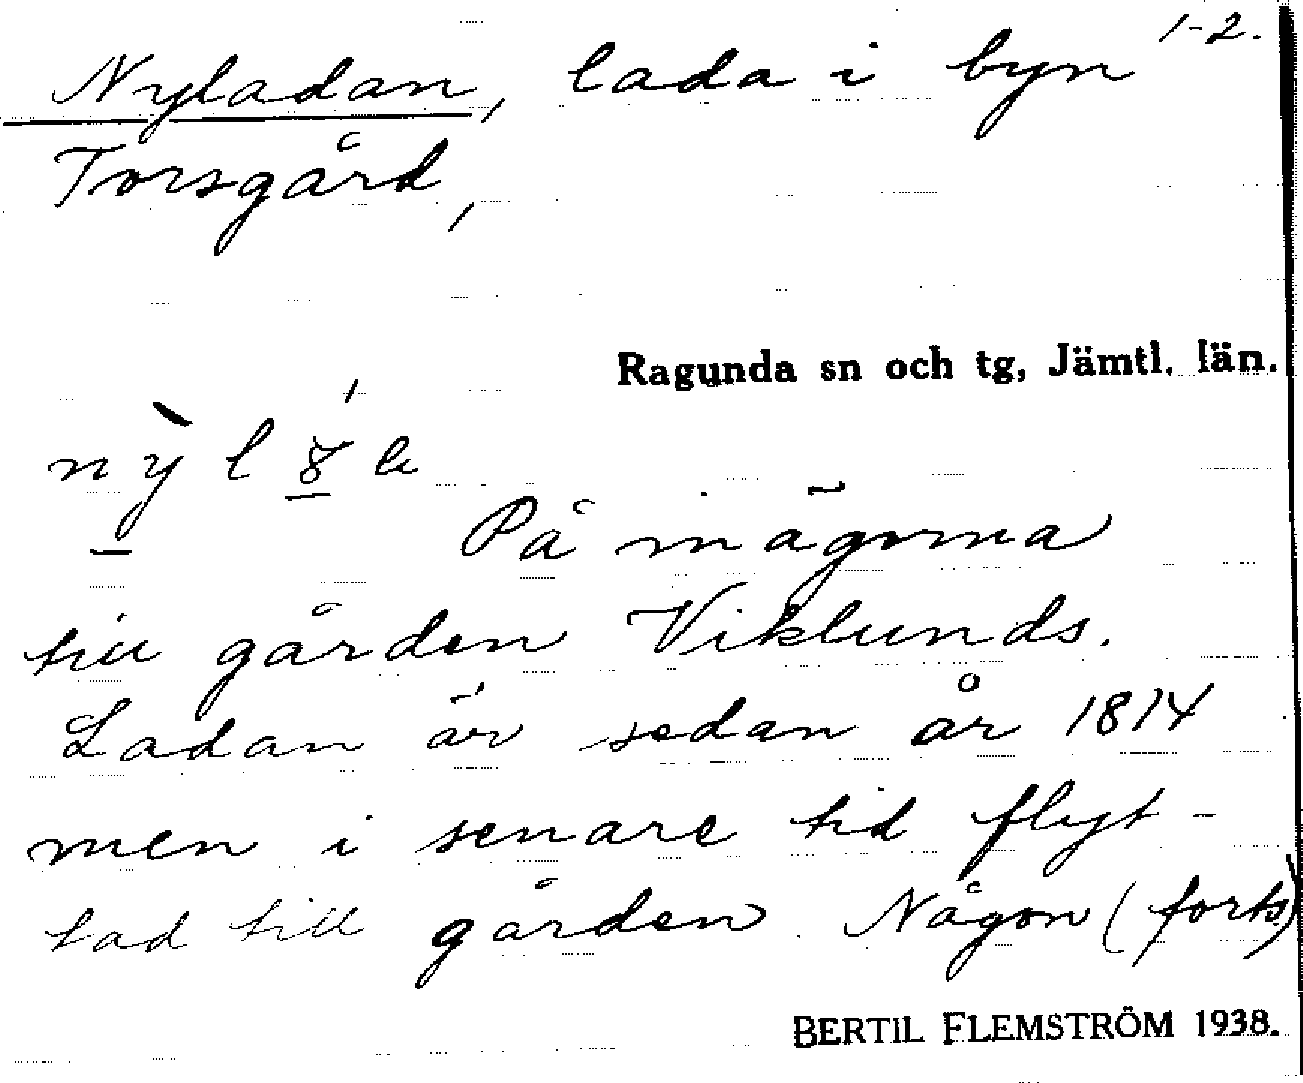 1-2.
Nyladan, lada i byn
Torsgård,
Ragunda sn och tg, Jämtl. län.
På mägorna
till gården Viklunds.
Ladan är sedan år 1814
men i senare tid flyt-
tad till gården. Någon (forts)
BERTIL FLEMSTRÖM 1938.